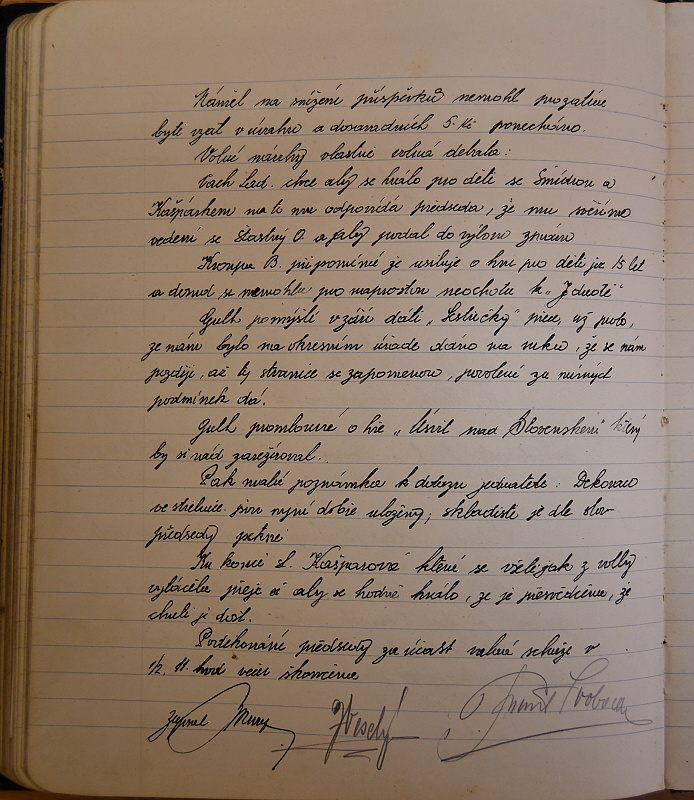 Námět na snížení příspěvků nemohl prozatím
býti vzat v úvahu a dosavadních 5 Kč ponecháno.
Volné návrhy vlastně volná debata:
Vach Lad. chce aby se hrálo pro děti se Šmidrou a
Kašpárkem na to mu odpovídá předseda, že mu svěříme
vedení se Šťastný O. a aby podal do výboru zprávu
Kroupa B. připomíná že usiluje o hru pro děti již 15 let
a dosud se nemohla pro naprostou neochotu k „Jednotě"
Guth pomýšlí v září dáti „Lestičky" proto,
že nám bylo na okresním úřadě dáno na ruku, že se nám
později, až ty stranice se zapomenou, povolení za
podmínek dá.
Guth promlouvá o hře „Úsvit nad Slovenskem" který
by si rád zarežíroval.
Pak malá poznámka k dotazu jednatele: Dekorace
ve střelnici jsou nyní dobře uloženy; skladiště je dle slov
předsedy pěkné
Ku konci sl. Kašparová které se vždy jak z rolly
vytáčela přeje si aby se hodně hrálo, že je přesvědčena, že
chutí je dost.
Poděkování předsedy za účast valná schůze v
1/2 11. hod večer skončena
zapsal JVeselý Svoboda